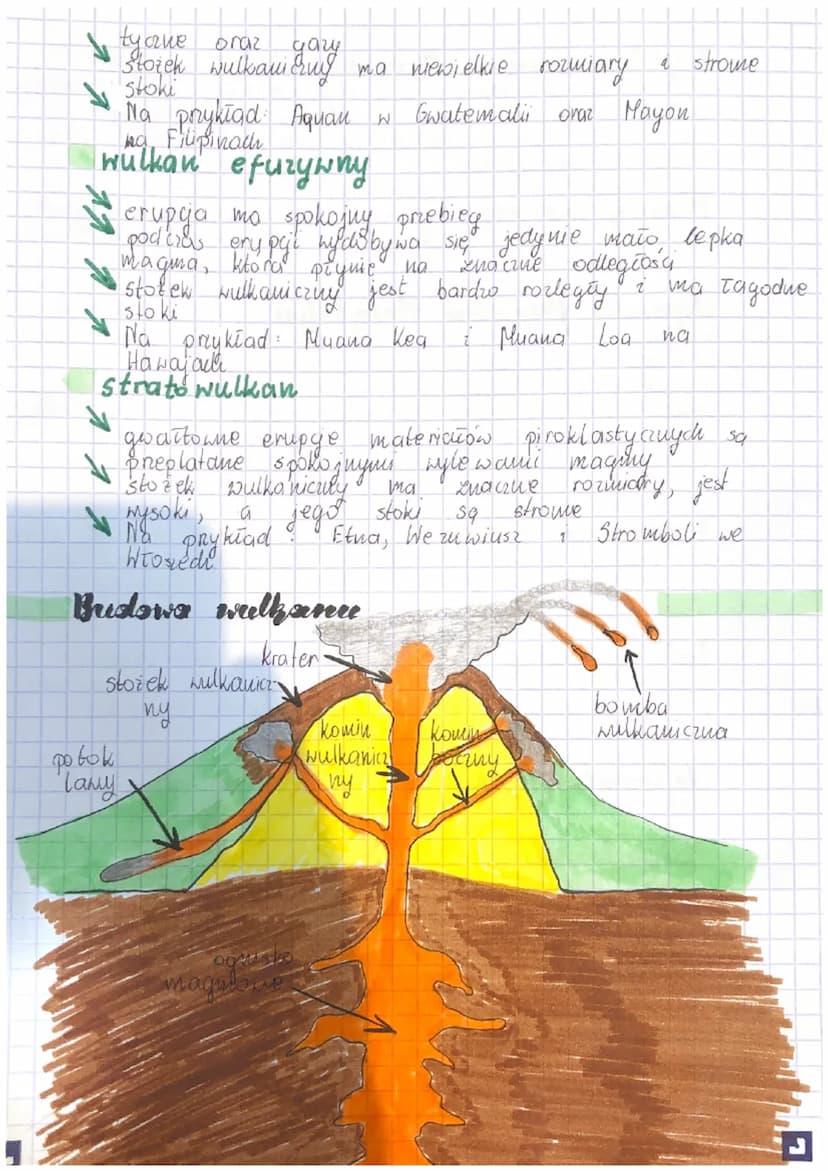 tyczne oraz gazy
stożek wulkaniczny ma niewielkie rozmiary i strome
stoki
Na przykład: Aquan w Gwatemalii oraz Mayon
na Filipinach
wulkan efuzywny
erupcja ma spokojny przebieg
podczas erupcji wydobywa się jedynie mało lepka
magma, która płynie na znaczne odległości
stożek wulkaniczny jest bardzo rozległy i ma łagodne
stoki
Na przykład: Muana Kea i Muana Loa na
Hawajach
stratowulkan
gwałtowne erupcje materiałów piroklastycznych są
przeplatane spokojnymi wylewami magmy
stożek wulkaniczny ma znaczne rozmiary, jest
wysoki, a jego stoki są strome
Na przykład: Etna, Wezuwiusz i Stromboli we
Włoszech
Budowa wulkanu
krater
stożek wulkanicz-
ny
bomba
wulkaniczna
komin
wulkanicz
ny
komin
boczny
potok
lawy
ognisko
magmowe